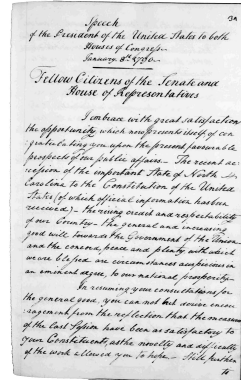 Speech
of the President of the United States to both
Houses of Congress
January 8th 1790
Fellow Citizens of the Senate and
House of Representatives
I embrace with great satisfaction
the opportunity, which now presents itself, of con-
gratulating you upon the present favourable
prospects of our public affairs. The recent ac-
cession of the important State of North
Carolina to the Constitution of the United
States (of which official information has been
received) – The rising credit and respectability
of our Country – the general and increasing
good will towards the Government of the Union
and the concord, peace and plenty, with which
we are blessed are circumstances auspicious in
an eminent degree, to our national prosperity.
In resuming your consultations for
the general good, you can not but derive encou-
ragement from the reflection that the measures
of the last Session have been as satisfactory to
your Constituents, as the novelty and difficulty
of the work allowed you to hope – Still further
to